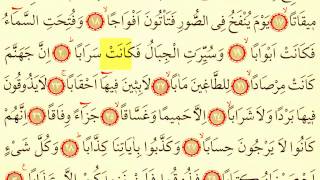 مِيقَاتًا ﴿١٧﴾ يَوْمَ يُنْفَخُ فِي الصُّورِ فَتَأْتُونَ اَفْوَاجًا ﴿١٨﴾ وَفُتِحَتِ السَّمَٓاءُ
فَكَانَتْ اَبْوَابًا ﴿١٩﴾ وَسُيِّرَتِ الْجِبَالُ فَكَانَتْ سَرَابًا ﴿٢٠﴾ اِنَّ جَهَنَّمَ
كَانَتْ مِرْصَادًا ﴿٢١﴾ لِلطَّاغِينَ مَاٰبًا ﴿٢٢﴾ لَابِثِينَ فِيهَٓا اَحْقَابًا ﴿٢٣﴾ لَا يَذُوقُونَ
فِيهَا بَرْدًا وَلَا شَرَابًا ﴿٢٤﴾ اِلَّا حَمِيمًا وَغَسَّاقًا ﴿٢٥﴾ جَزَٓاءً وِفَاقًا ﴿٢٦﴾ اِنَّهُمْ
كَانُوا لَا يَرْجُونَ حِسَابًا ﴿٢٧﴾ وَكَذَّبُوا بِاٰيَاتِنَا كِذَّابًا ﴿٢٨﴾ وَكُلَّ شَيْءٍ